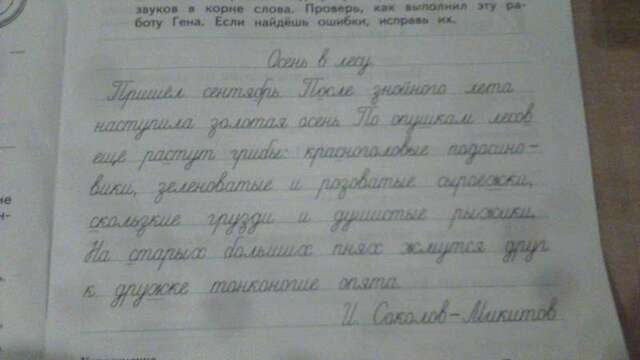 звуков в корне слова. Проверь, как выполнил эту ра-
боту Гена. Если найдёшь ошибки, исправь их.
Осень в лесу.
Пришёл сентябрь. После знойного лета
наступила золотая осень. По опушкам лесов
ещё растут грибы: красноголовые подосино-
вики, зеленоватые и розоватые сыроежки,
скользкие грузди и душистые рыжики.
На старых больших пнях жмутся друг
к дружке тонконогие опята.
И. Соколов-Микитов